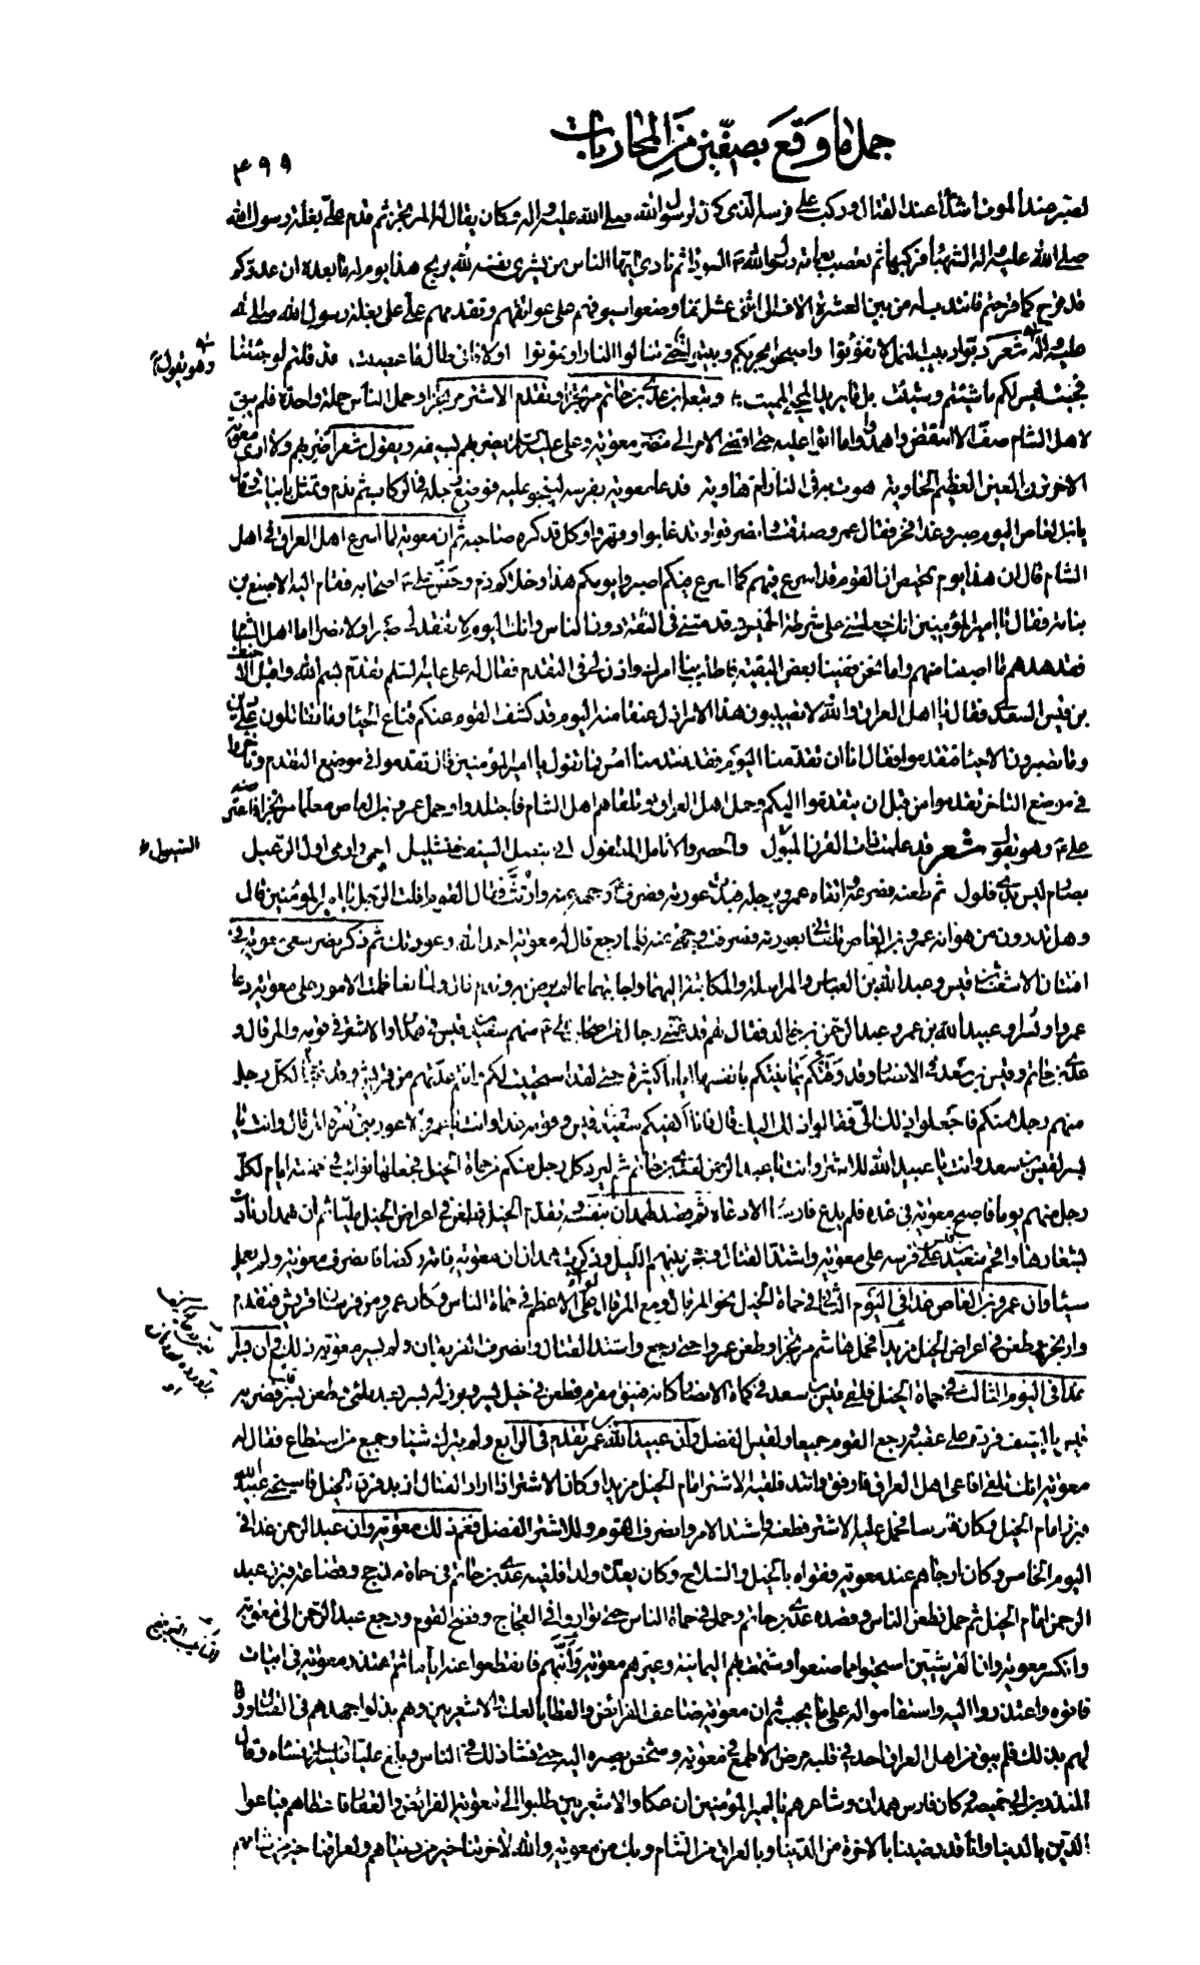 جمل ما وقع بصفين من المحاربات
٤٩٩
عند القتال وركب على فرسه الذى كان لرسول الله صلى الله عليه وآله وكان يقال له المرتجز ثم قدم على بغلة رسول الله
صلى الله عليه وآله الشهباء فركبها ثم تعصب بعمامة رسول الله السوداء ثم نادى ايها الناس من يشرى نفسه لله يربح هذا يوم له ما بعده ان عدوكم
قد قرح كما قرحتم فانتدب له من بين العشرة الاف الى اثنى عشر الفا وضعوا سيوفهم على عواتقهم وتقدمهم على على بغلة رسول الله صلى الله
عليه وآله شعر دبوا دبيب النمل لا تفوتوا واصبحوا بحربكم وبيتوا حتى تنالوا الثار او تموتوا اولا فانى طالما عصيت قد قلتم لو جئتنا
وهو يقول
فجئت ليس لكم ما شئتم وشئت بل ما يريد المحيى المميت وتبعه ابن عدى بن حاتم وتقدم الاشتر وحمل الناس حملة واحدة فلم يبق
لاهل الشام صف الا انتقض واهمدوا ما اتوا عليه حتى افضى الامر الى مضرب معوية وعلى عليه السلم يضربهم بسيفه ويقول شعر اضربهم ولا ارى معوية
الاخزر العين العظيم الحاوية هوت به فى النار ام هاوية فدعا معوية بفرسه لينجو عليه فوضع رجله فى الركاب ثم تمثل بابيات وقال
يا بن العاص اليوم صبر وغدا فخر فقال عمرو صدقت وكل قد كره صاحبه ثم ان معوية لما اسرع اهل العراق فى اهل
الشام قال ان هذا يوم تمحيص ان القوم قد اسرع فيهم كما اسرع فيكم اصبروا يومكم هذا وخلاكم ذم وحضض على اصحابه فقام اليه الاصبغ بن
نباتة فقال يا امير المؤمنين انك جعلتنى على شرطة الخميس وقدمتنى فى الثقة دون الناس وانك اليوم لا تفقد لى صبرا ولا نصرا اما اهل الشام
فقد هدهم ما اصبنا منهم واما نحن ففينا بعض البقية فاطلب بنا امرك واذن لى فى التقدم فقال له على عليه السلم تقدم بسم الله واقبل الاحنف
بن قيس السعدى فقال يا اهل العراق والله لا تصيبون هذا الامر اذل عنقا منه اليوم قد كشف القوم عنكم قناع الحياء وما يقاتلون على دين
وما يصبرون الا حياء فتقدموا فقالوا انا ان تقدمنا اليوم فقد تقدمنا امس فما تقول يا امير المؤمنين قال تقدموا فى موضع التقدم وتاخروا
فى موضع التاخر تقدموا من قبل ان يتقدموا اليكم وحمل اهل العراق وتلقاهم اهل الشام فاجتلدوا وحمل عمرو بن العاص معلما
على وهو يقول شعر قد علمت ذات القرون الميل والخصر والانامل الطفول انى بنصل السيف خنشليل احمى وارمى اول الرعيل
بصارم ليس بذى فلول ثم طعنه فصرعه واتقاه عمرو برجله فبدت عورته فصرف على وجهه عنه وارتث فقال القوم افلت الرجل يا امير المؤمنين قال
وهل تدرون من هو انه عمرو بن العاص تلقانى بعورته فصرفت وجهى عنه فلما رجع قال له معوية احمد الله وعورتك ثم ذكر نصر سعى معوية فى
افتتان الاشعث بن قيس وعبد الله بن العباس والمراسلة والمكاتبة اليهما ولما تعاظمت الامور على معوية دعا
عمرا وبسرا وعبيد الله بن عمر وعبد الرحمن بن خالد فقال لهم قد غمنى رجال من اصحاب على منهم سعيد بن قيس فى همدان والاشتر فى قومه والمرقال و
عدى بن حاتم وقيس بن سعد فى الانصار وقد وقتكم يمانيتكم بانفسها اياما كثيرة حتى لقد استحييت لكم وانتم عدتهم من قريش لكل رجل
منهم رجل منكم فاجعلوا ذلك الى فقالوا ذلك اليك قال فانا اكفيكم سعيد بن قيس وقومه غدا وانت يا عمرو لاعور بنى زهرة المرقال وانت يا
بسر لقيس بن سعد وانت يا عبيد الله للاشتر وانت يا عبد الرحمن لعدى بن حاتم ثم ليرد كل رجل منكم من حماة الخيل فجعلها نوائب فى خمسة ايام لكل
رجل منهم يوما فاصبح معوية فى غده فلم يدع فارسا الا دعاه ثم قصد لهمدان بنفسه وتقدم الخيل فطعن فى اعراض الخيل مليا ثم ان همدان نادت
بشعارها واقحم سعيد بن قيس فرسه على معوية واشتد القتال وحجز بينهم الليل وذكرت همدان ان معوية فاتها ركضا فانصرف معوية ولم يعمل
شيئا وان عمرو بن العاص غدا فى اليوم الثانى فى حماة الخيل نحو المرقال ومع المرقال لواء على الاعظم فى حماة الناس وكان عمرو من فرسان قريش فتقدم
وارتجز وطعن فى اعراض الخيل مزبدا فحمل هاشم مرتجزا وطعن عمروا حتى رجع واشتد القتال وانصرف الفريقان ولم يسر معوية ذلك وان بسرا
غدا فى اليوم الثالث فى حماة الخيل فلقى قيس بن سعد فى كماة الانصار كانه فنيق مقرم فطعن فى خيل بسر وبرز له بسر بعد ملى فطعن بسر فضربه
قيس بالسيف فرده على عقبه ورجع القوم جميعا ولقيس الفضل وان عبيد الله بن عمر تقدم فى الرابع ولم يترك شيئا وجمع من استطاع فقال له
معوية انك تلقى افاعى اهل العراق فارفق واتئد فلقيه الاشتر امام الخيل مزبدا وكان الاشتر اذا اراد القتال ازبد الخيل فاستحى عبيد الله
فبرز امام الخيل وكان فارسا فحمل عليه الاشتر فطعنه واشتد الامر وانصرف القوم وللاشتر الفضل فغم ذلك معوية وان عبد الرحمن غدا فى
اليوم الخامس وكان ارجاهم عند معوية فقواه بالخيل والسلاح وكان يعده ولدا فلقيه عدى بن حاتم فى حماة مذحج وقضاعة فبرز عبد
الرحمن امام الخيل ثم حمل فطعن الناس وقصده عدى بن حاتم وحمل فى حماة الناس حتى تواروا فى العجاج وفضح القوم ورجع عبد الرحمن الى معوية
وانكسر معوية وان القرشيين استحيوا مما صنعوا وشمتت بهم اليمانية وعيرهم معوية وانبهم فانقطعوا عنه اياما ثم عند معوية فى ابيات
فاتوه واعتذروا اليه واستقاموا له على ما يحب ثم ان معوية ضاعف الفرائض والعطايا لعك والاشعريين وهم بذلوا جهدهم فى القتال
لهم بذلك فلم يبق من اهل العراق احد فى قلبه مرض الا طمع فى معوية وشخص بصره اليه حتى فشا ذلك فى الناس وبلغ عليا فساءه وقال
المنذر بن ابى حميصة وكان فارس همدان وشاعرهم يا امير المؤمنين ان عكا والاشعريين طلبوا الى معوية الفرائض والعقار فاعطاهم فباعوا
الدين بالدنيا وانا قد رضينا بالاخرة من الدنيا وبالعراق من الشام وبك من معوية والله لاخرتنا خير من دنياهم ولعراقنا خير من شامهم